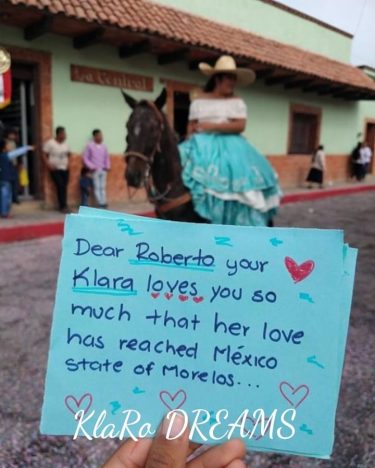 La Central
Dear Roberto your
Klara loves you so
much that her love
has reached México
state of Morelos...
KlaRo DREAMS